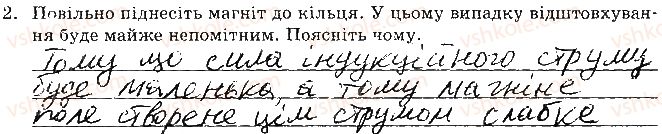 2. Повільно піднесіть магніт до кільця. У цьому випадку відштовхуван-
ня буде майже непомітним. Поясніть чому.
Тому що сила індукційного струму
буде маленька, а тому магніне
поле створене цім струмом слабке